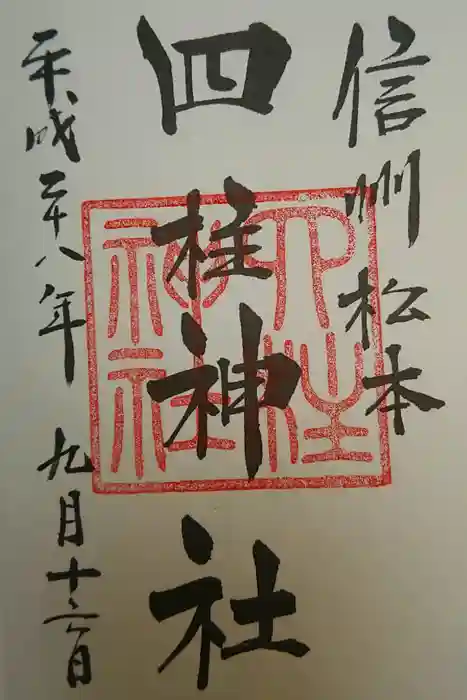 信州松本
四柱神社
平成二十八年 九月十三日
四柱神社